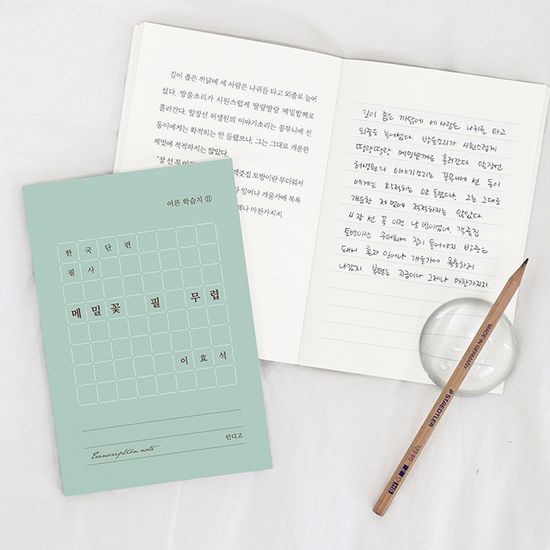 길이 좁은 까닭에 세 사람은 나귀를 타고 외줄로 늘어
섰다. 방울소리가 시원스럽게 딸랑딸랑 메밀밭께로
흘러간다. 앞장선 허생원의 이야기소리는 꽁무니에 선
동이에게는 확적히는 안 들렸으나, 그는 그대로 개운한
제멋에 적적하지는 않았다.
"장 선 꼭 이
깨줏집 토방이란 무더워서
일어나 개울가에 목욕
제나 마찬가지지
길이 좁은 까닭에 세 사람은 나귀를 타고
외줄로 늘어섰다. 방울소리가 시원스럽게
딸랑딸랑 메밀밭께로 흘러간다. 앞장선
허생원의 이야기소리는 꽁무니에 선 동이
에게는 확적히는 안 들렸으나, 그는 그대로
개운한 제멋에 적적하지는 않았다.
"장 선 꼭 이런 날 밤이었네. 객줏집
토방이란 무더워서 잠이 들어야지. 밤중은
돼서 혼자 일어나 개울가에 목욕하러
나갔지. 봉평은 지금이나 그제나 마찬가지지
어른 학습지 ⑪
한국단편
필사
메밀꽃 필 무렵
이효석
Transcription note
인디고
MADE IN GERMANY
STAEDTLER
123 60
HB